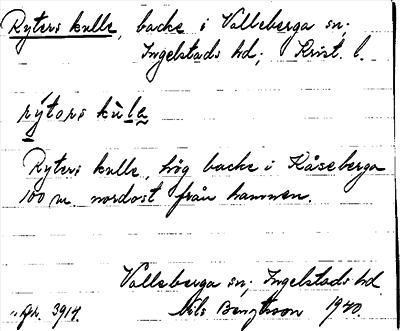 Ryters kulle, backe i Valleberga sn;
Ingelstads hd; Krist. l.
rýtors kùla
Ryters kulle, hög backe i Kåseberga
100 m. nordost från hamnen.
Valleberga sn; Ingelstads hd
Nils Bengtsson 1940.
3914.